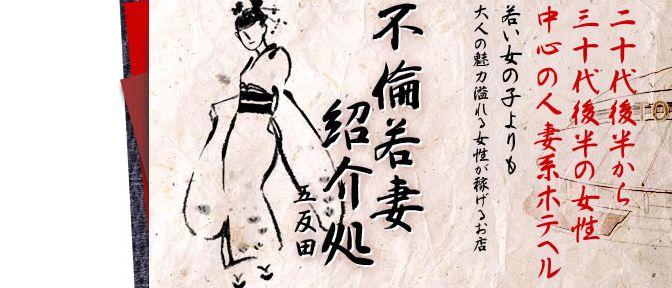 二十代後半から
三十代後半の女性
中心の人妻系ホテヘル
若い女の子よりも
大人の魅力溢れる女性が稼げるお店
不倫若妻
紹介処
五反田